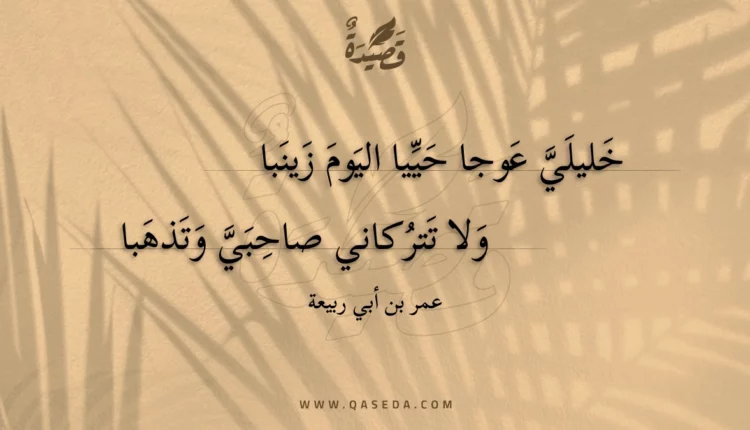 قَصِيْدَةٌ
خَليلَيَّ عَوجا حَيِّيا اليَومَ زَينَبا
وَلا تَترُكاني صاحِبَيَّ وَتَذهَبا
عمر بن أبي ربيعة
WWW.QASEDA.COM